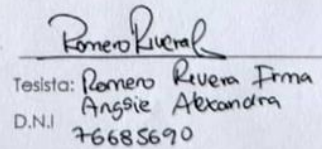 Romero Rivera
Tesista: Romero Rivera Irma
Angsie Alexandra
D.N.I 76685690